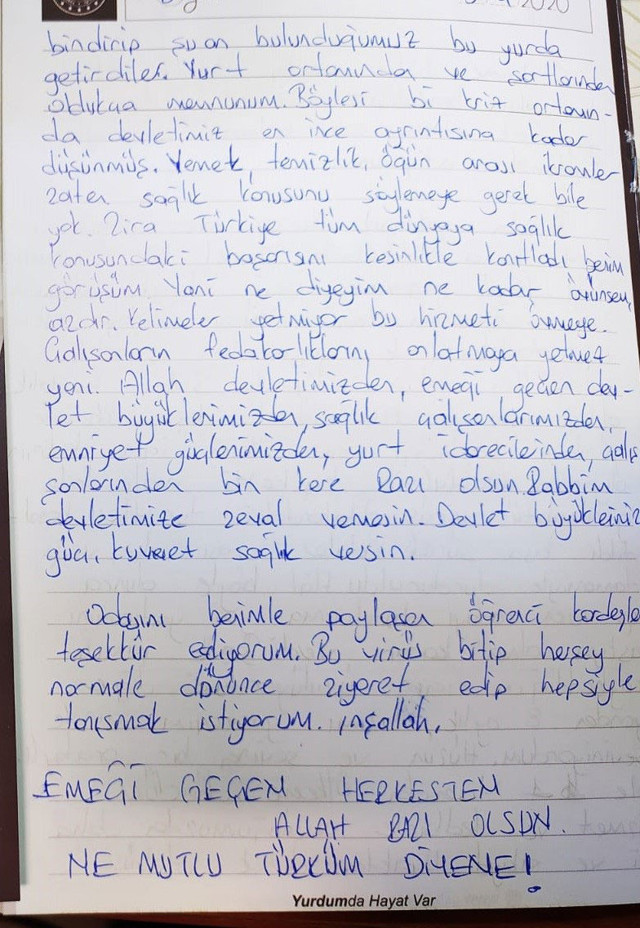 2020
bindirip şu an bulunduğumuz bu yurda
getirdiler. Yurt ortamında ve şartlarından
oldukça memnunum. Böylesi bi kriz ortamın-
da devletimiz en ince ayrıntısına kadar
düşünmüş. Yemek, temizlik, öğün arası ikramlar
zaten sağlık konusunu söylemeye gerek bile
yok. Zira Türkiye tüm dünyaya sağlık
konusundaki başarısını kesinlikle kanıtladı benim
görüşüm. Yani ne diyeyim ne kadar övünsem
azdır. Kelimeler yetmiyor bu hizmeti övmeye.
Çalışanların fedakarlıklarını anlatmaya yetmez
yani. Allah devletimizden, emeği geçen dev-
let büyüklerimizden, sağlık çalışanlarımızdan,
emniyet güçlerimizden, yurt idarecilerinden, çalış
şanlarından bin kere Razı olsun. Rabbim
devletimize zeval vermesin. Devlet büyüklerimiz
güç, kuvvet sağlık versin.
Odasını benimle paylaşan öğrenci kardeşle
teşekkür ediyorum. Bu virüs bitip herşey
normale dönünce ziyaret edip hepsiyle
tanışmak istiyorum. inşallah.
EMEĞİ GEÇEN HERKESTEN
ALLAH RAZI OLSUN.
NE MUTLU TÜRKÜM DİYENE!
Yurdumda Hayat Var